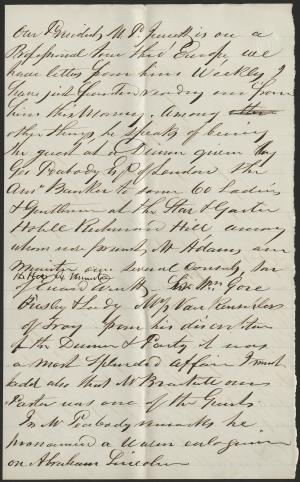 Our President M P Jewett is on a
Professional Tour thro' Europe, we
have letters from him Weekly I
have just question one from
him this Morning. Among
other things he speaks of being
the guest at a Dinner given by
Geo Peabody Esq of London the
Amn Banker to some 60 Ladies
& Gentlemen at the Star & Garter
Hotel Richmond Hill among
whom were present Mr Adams our
Minister our several Consuls Son
of Edward Everett Wm Gore
Ousley & Lady Mrs Van Rensselaer
of Troy from his discription
of the Dinner & Party it was
a most splendid affair I must
add also that Mr our
Pastor was one of the Guests
In Mr Peabodys remarks he
pronounced a Warm eulogium
on Abraham Lincoln